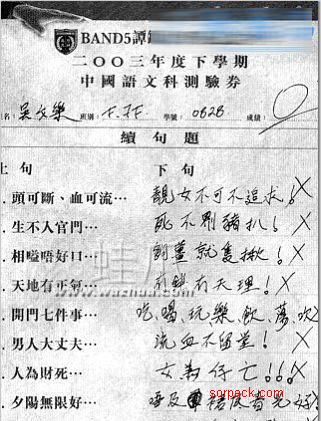 BAND5譚
二〇〇三年度下學期
中國語文科測驗券
名: 吳文樂 班別: F.3F 學號: 0626 成績: 0
續句題
上句 下句
. 頭可斷、血可流… 靚女不可不追求! X
. 生不人官門… 死不劏豬扒! X
. 相嗌唔好口… 開薑就隻揪! X
. 天地有正氣… 有天理! X
. 開門七件事… 吃喝玩樂飲蕩吹
. 男人大丈夫… 流血不留堂! X
. 人為財死… 女為仔亡!!! X
. 夕陽無限好… 唔及 好!
蛙
www.wazhua.com
sorpack.com